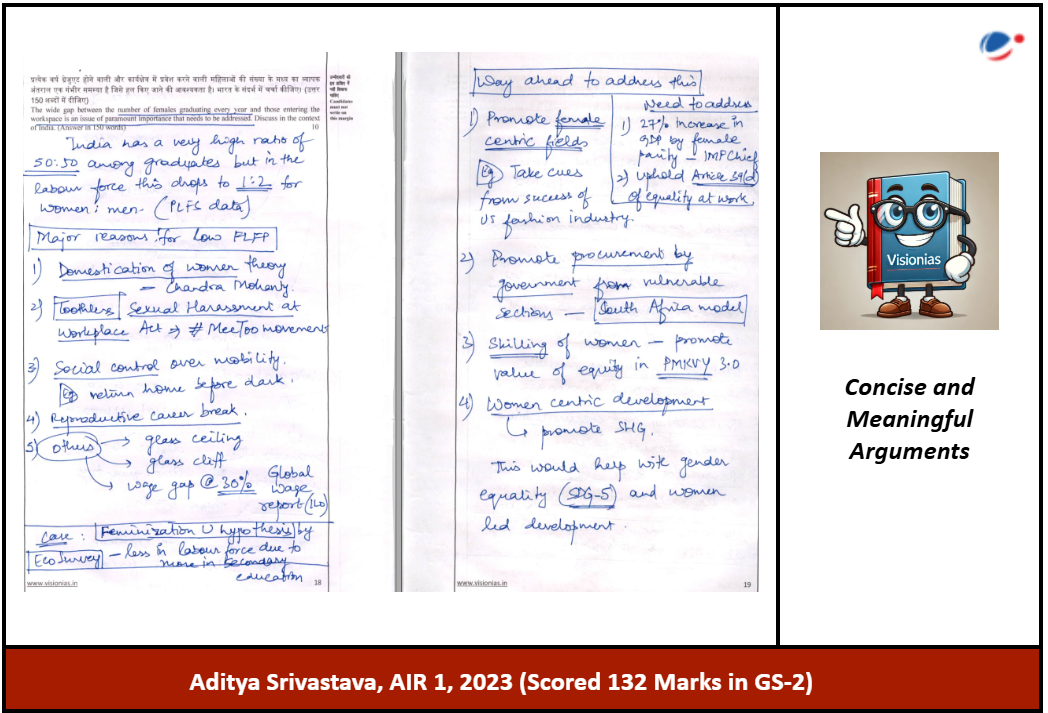 प्रत्येक वर्ष ग्रेजुएट होने वाली और कार्यक्षेत्र में प्रवेश करने वाली महिलाओं की संख्या के मध्य का व्यापक
अंतराल एक गंभीर समस्या है जिसे हल किए जाने की आवश्यकता है। भारत के संदर्भ में चर्चा कीजिए। (उत्तर
150 शब्दों में दीजिए)
The wide gap between the number of females graduating every year and those entering the
workspace is an issue of paramount importance that needs to be addressed. Discuss in the context
of India. (Answer in 150 words) 10
उम्मीदवारों को
इस हाशिए में
नहीं लिखना
चाहिए
Candidates
must not
write on
this margin
India has a very high ratio of
50:50 among graduates but in the
labour force this drops to 1:2 for
women: men. (PLFS data)
Major reasons for low FLFP
1) Domestication of women theory
– Chandra Mohanty.
2) Toothless Sexual Harassment at
Workplace Act ⇒ # MeeToo movement
3) Social control over mobility.
eg return home before dark.
4) Reproductive career break.
5) Others → glass ceiling
→ glass cliff
→ wage gap @ 30% Global
wage
report (ILO)
Case : Feminization U hypothesis by
Eco Survey – less in labour force due to
more in secondary
education
www.visionias.in 18
Way ahead to address this
1) Promote female
centric fields
Eg Take cues
from success of
US fashion industry.
Need to address
1) 27% increase in
GDP by female
parity – IMF Chief
2) Uphold Article 39(d)
of equality at work
2) Promote procurement by
government from vulnerable
sections – South Africa model
3) Skilling of women – promote
value of equity in PMKVY 3.0
4) Women centric development
↳ promote SHG.
This would help with gender
equality (SDG-5) and women
led development.
www.visionias.in 19
Visionias
Concise and
Meaningful
Arguments
Aditya Srivastava, AIR 1, 2023 (Scored 132 Marks in GS-2)